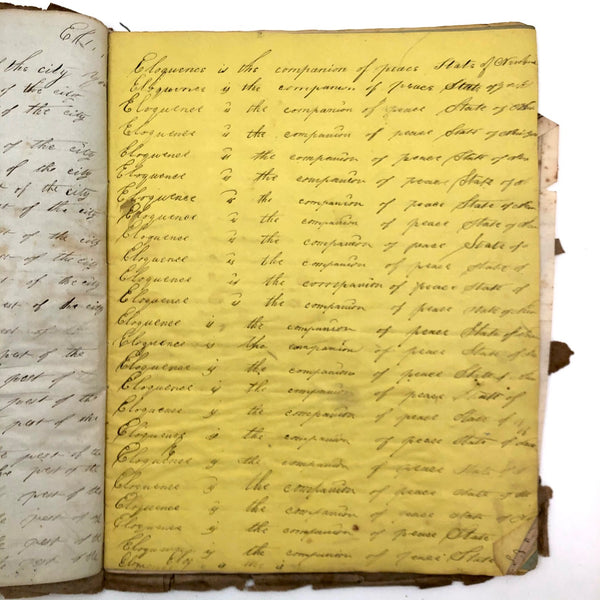 of the city
of the city
of the city
of the city
of the city
t of the city
t of the city
est of the city
est of the city
est of the city
pest of the city
pest of the
pest of the
pest of the
pest of the
pest of the
pest of the
pest of the
pest of the
Eloquence is the companion of peace State of
Eloquence is the companion of peace State of
Eloquence is the companion of peace State of
Eloquence is the companion of peace State of
Eloquence is the companion of peace State of
Eloquence is the companion of peace State of
Eloquence is the companion of peace State of
Eloquence is the companion of peace State of
Eloquence is the companion of peace State of
Eloquence is the companion of peace State of
Eloquence is the companion of peace State of
Eloquence is the companion of peace State of
Eloquence is the companion of peace State of
Eloquence is the companion of peace State of the
Eloquence is the companion of peace State of
Eloquence is the companion of peace State of
Eloquence is the companion of peace State of
Eloquence is the companion of peace State of
Eloquence is the companion of peace State
Eloquence is the companion of peace State of
Eloquence is the companion of peace State of
Eloquence is the companion of peace State
Eloquence is the companion of peace State
is the